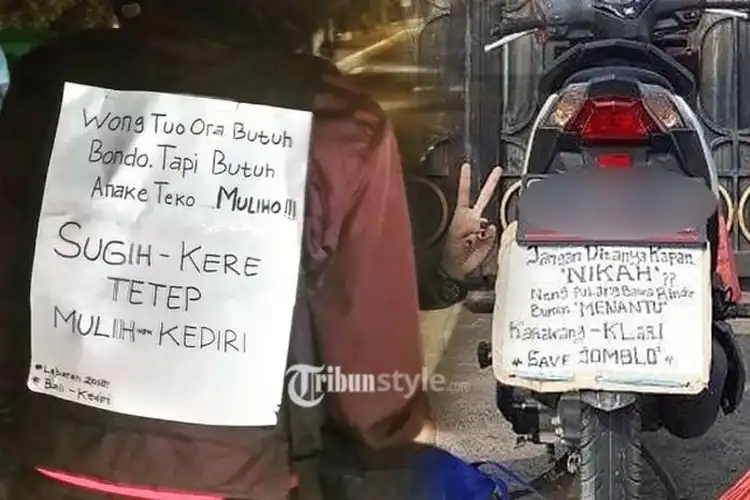 Wong Tuo Ora Butuh
Bondo. Tapi Butuh
Anake Teko... MULIHO!!!
SUGIH - KERE
TETEP
MULIH KEDIRI
#Lebaran
# Bali - Kediri
Tribunstyle.com
Jangan Ditanya Kapan
"NIKAH"??
Neng Pulang Bawa Rindu
Bukan "MENANTU"
Karawang - KLARI
"SAVE JOMBLO"